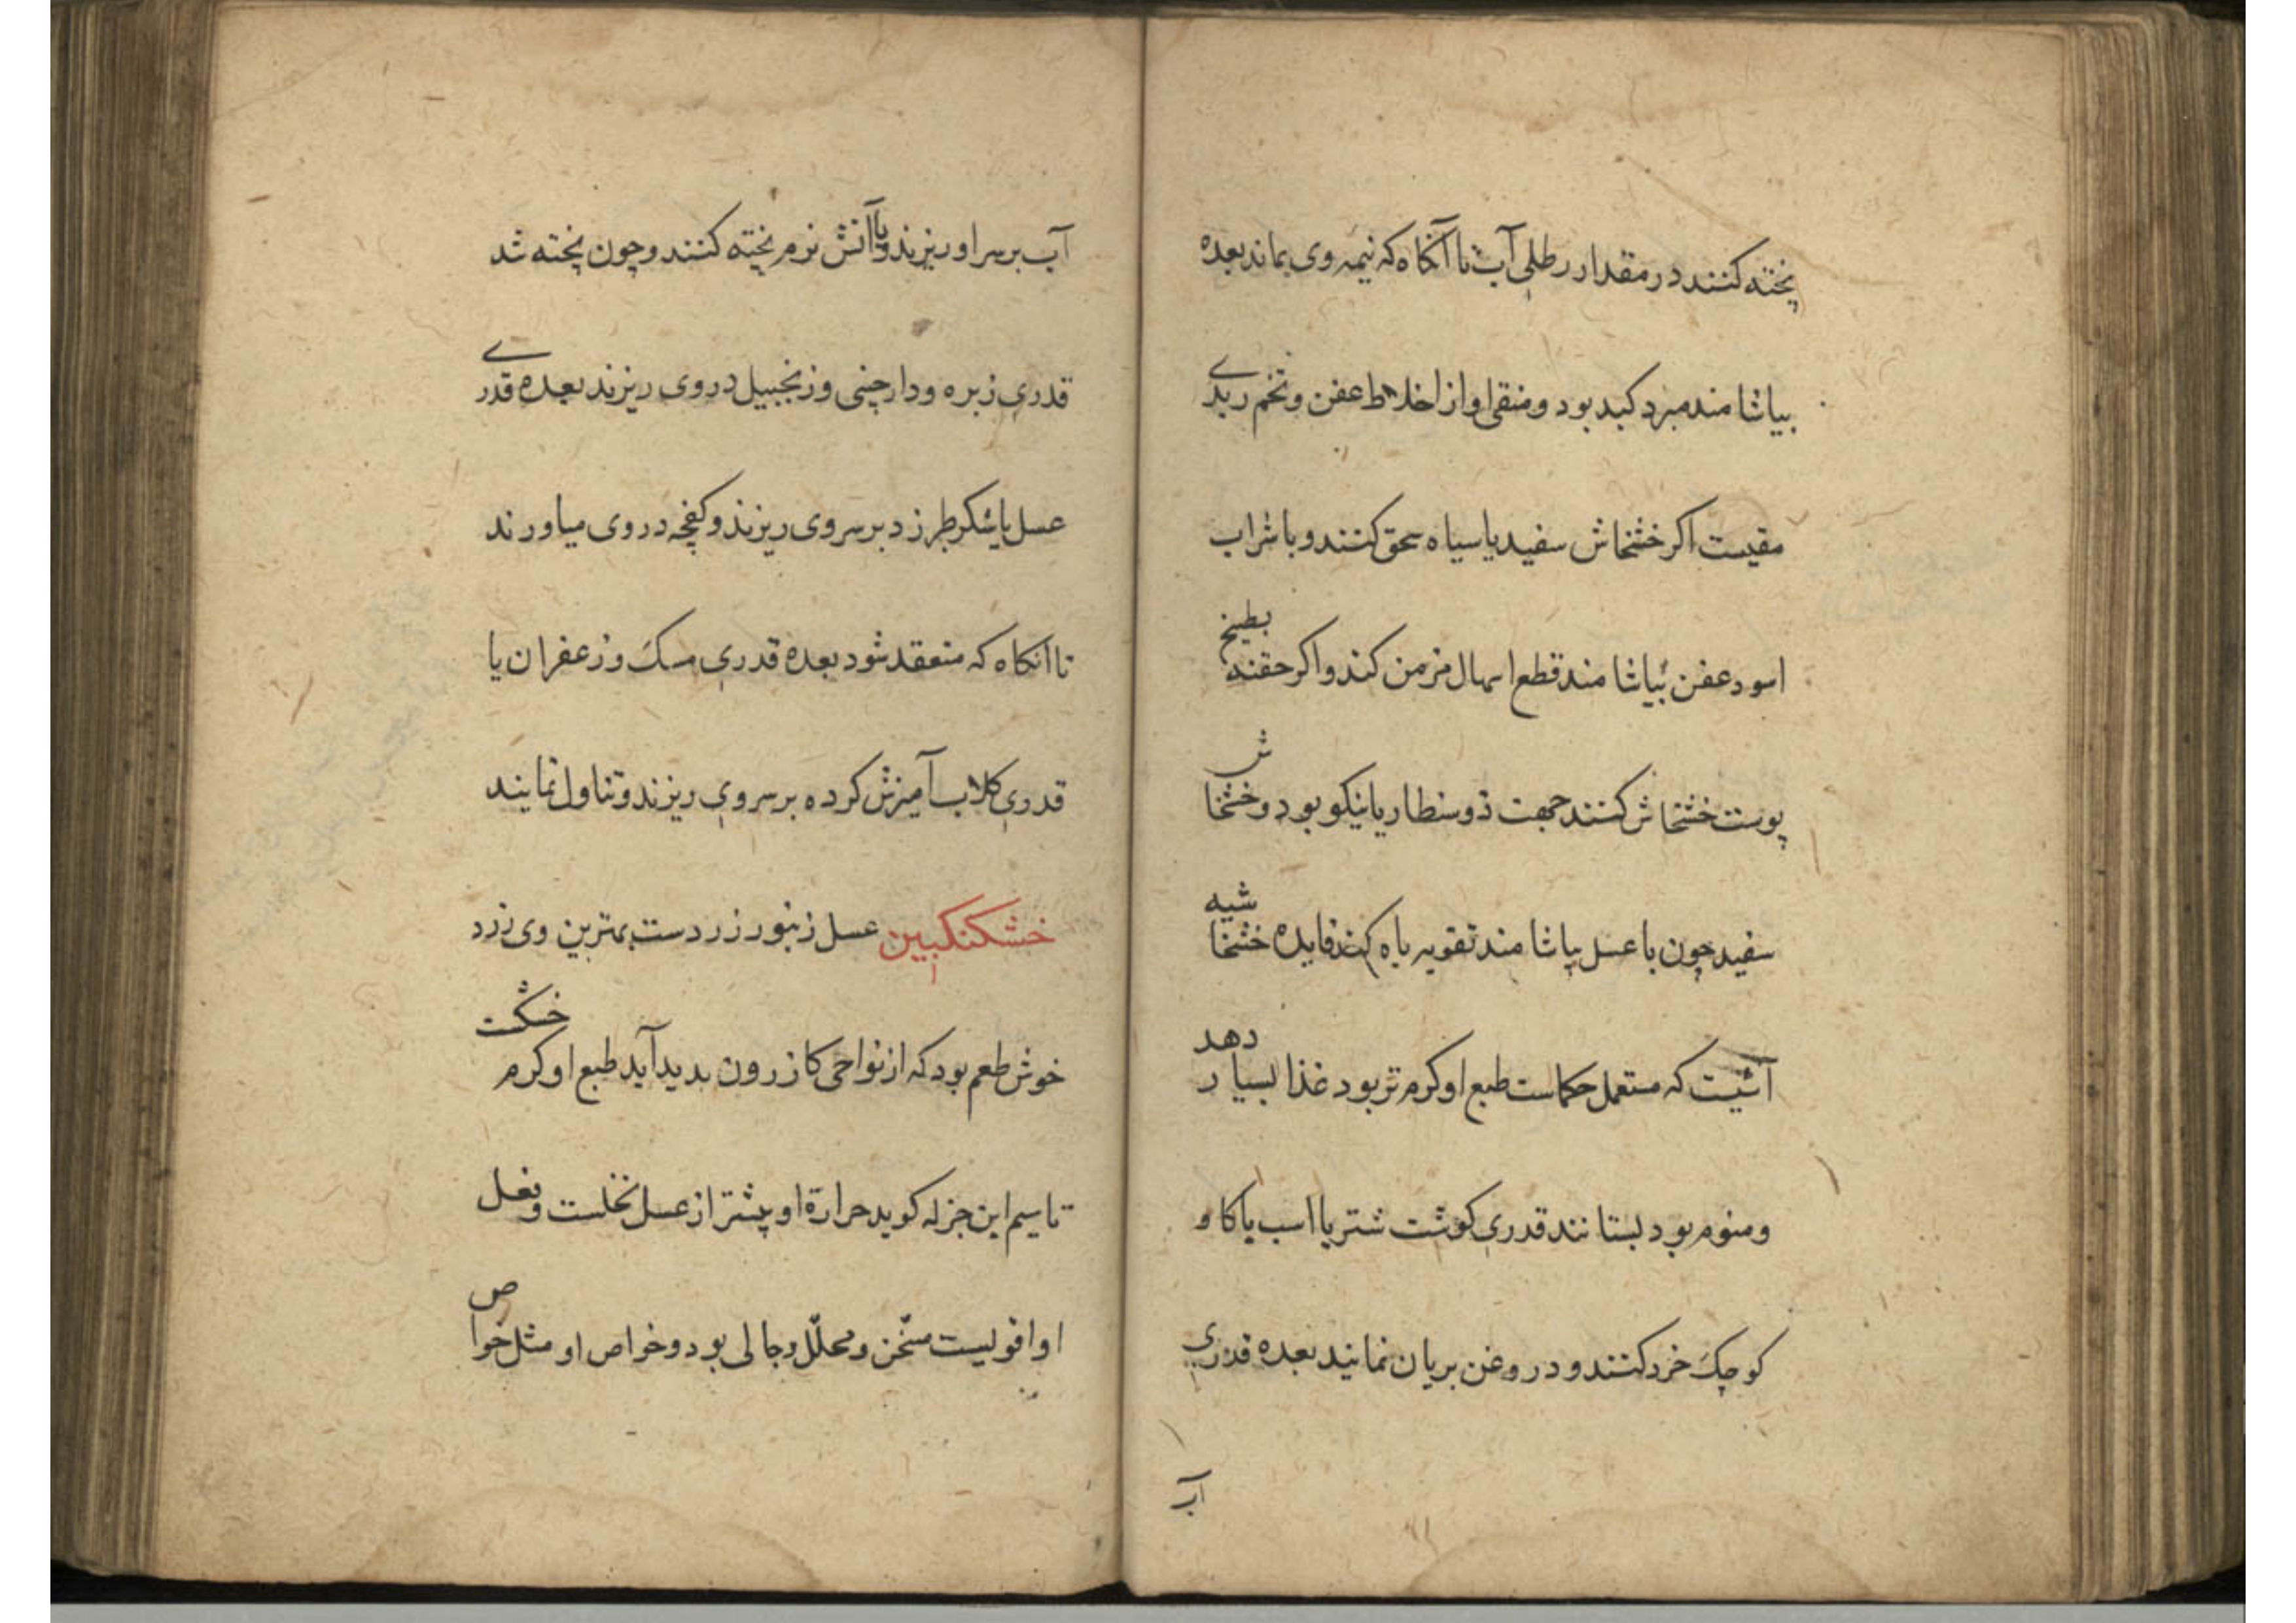 پخته کنند در مقدار رطلی آب تا آنکاه که نیمه وی بماند بعده
بیاشامند مبرد کبد بود و منقی او از اخلاط عفن و تخم زبدی
مقیست اکر خشخاش سفید یا سیاه سحق کنند و با شراب
اسود عفن بیاشامند قطع اسهال مزمن کند و اکر حقنه بطبیخ
پوست خشخاش کنند جهت ذوسنطاریا نیکو بود و خشخاش
سفید چون با عسل بیاشامند تقویه باه کند فایده خشخاشیه
آشیت که مستعمل حکماست طبع او کرم تر بود غذا بسیار دهد
و منوم بود بستانند قدری کوشت شتر یا اسب یا کاو
کوچک خرد کنند و در روغن بریان نمایند بعده قدری
آب
آب بر سر او ریزند و با آتش نرم پخته کنند و چون پخته شد
قدری زیره و دارچینی و زنجبیل در وی ریزند بعده قدری
عسل یا شکر طبرزد بر سر وی ریزند و کفچه در وی میاورند
تا آنکاه که منعقد شود بعده قدری مسک و زعفران با
قدری کلاب آمیزش کرده بر سر وی ریزند و تناول نمایند
خشکنکبین عسل زنبور زردست بهترین وی زرد
خوش طعم بود که از نواحی کازرون بدید آید طبع او کرم خشکست
تا سیم ابن جزله کوید حرارة او بیشتر از عسل نخلست و فعل
او اقویست مسخن و محلل و جالی بود و خواص او مثل خواص